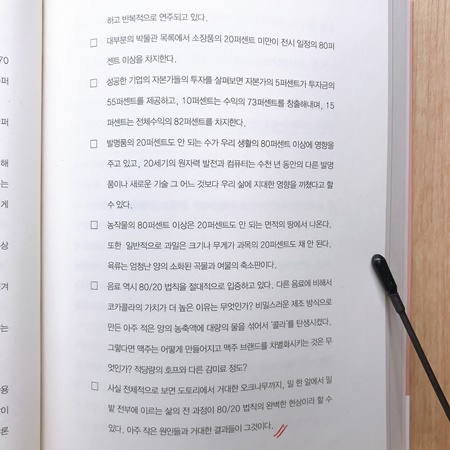 하고 반복적으로 연주되고 있다.
□ 대부분의 박물관 목록에서 소장품의 20퍼센트 미만이 전시 일정의 80퍼
센트 이상을 차지한다.
□ 성공한 기업의 자본가들의 투자를 살펴보면 자본가의 5퍼센트가 투자금의
55퍼센트를 제공하고, 10퍼센트는 수익의 73퍼센트를 창출해내며, 15
퍼센트는 전체수익의 82퍼센트를 차지한다.
□ 발명품의 20퍼센트도 안 되는 수가 우리 생활의 80퍼센트 이상에 영향을
주고 있고, 20세기의 원자력 발전과 컴퓨터는 수천 년 동안의 다른 발명
품이나 새로운 기술 그 어느 것보다 우리 삶에 지대한 영향을 끼쳤다고 할
수 있다.
□ 농작물의 80퍼센트 이상은 20퍼센트도 안 되는 면적의 땅에서 나온다.
또한 일반적으로 과일은 크기나 무게가 과목의 20퍼센트도 채 안 된다.
육류는 엄청난 양의 소화된 곡물과 여물의 축소판이다.
□ 음료 역시 80/20 법칙을 절대적으로 입증하고 있다. 다른 음료에 비해서
코카콜라의 가치가 더 높은 이유는 무엇인가? 비밀스러운 제조 방식으로
만든 아주 적은 양의 농축액에 대량의 물을 섞어서 '콜라'를 탄생시켰다.
그렇다면 맥주는 어떻게 만들어지고 맥주 브랜드를 차별화시키는 것은 무
엇인가? 적당량의 호프와 다른 감미료 정도?
□ 사실 전체적으로 보면 도토리에서 거대한 오크나무까지, 밀 한 알에서 밀
밭 전부에 이르는 삶의 전 과정이 80/20 법칙의 완벽한 현상이라 할 수
있다. 아주 작은 원인들과 거대한 결과들이 그것이다.
70
퍼
퍼
해
는
게
상
겨
는
용
이
론